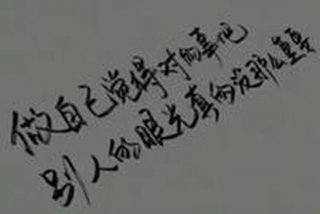 做自己觉得对的事吧
别人的眼光真的没那么重要